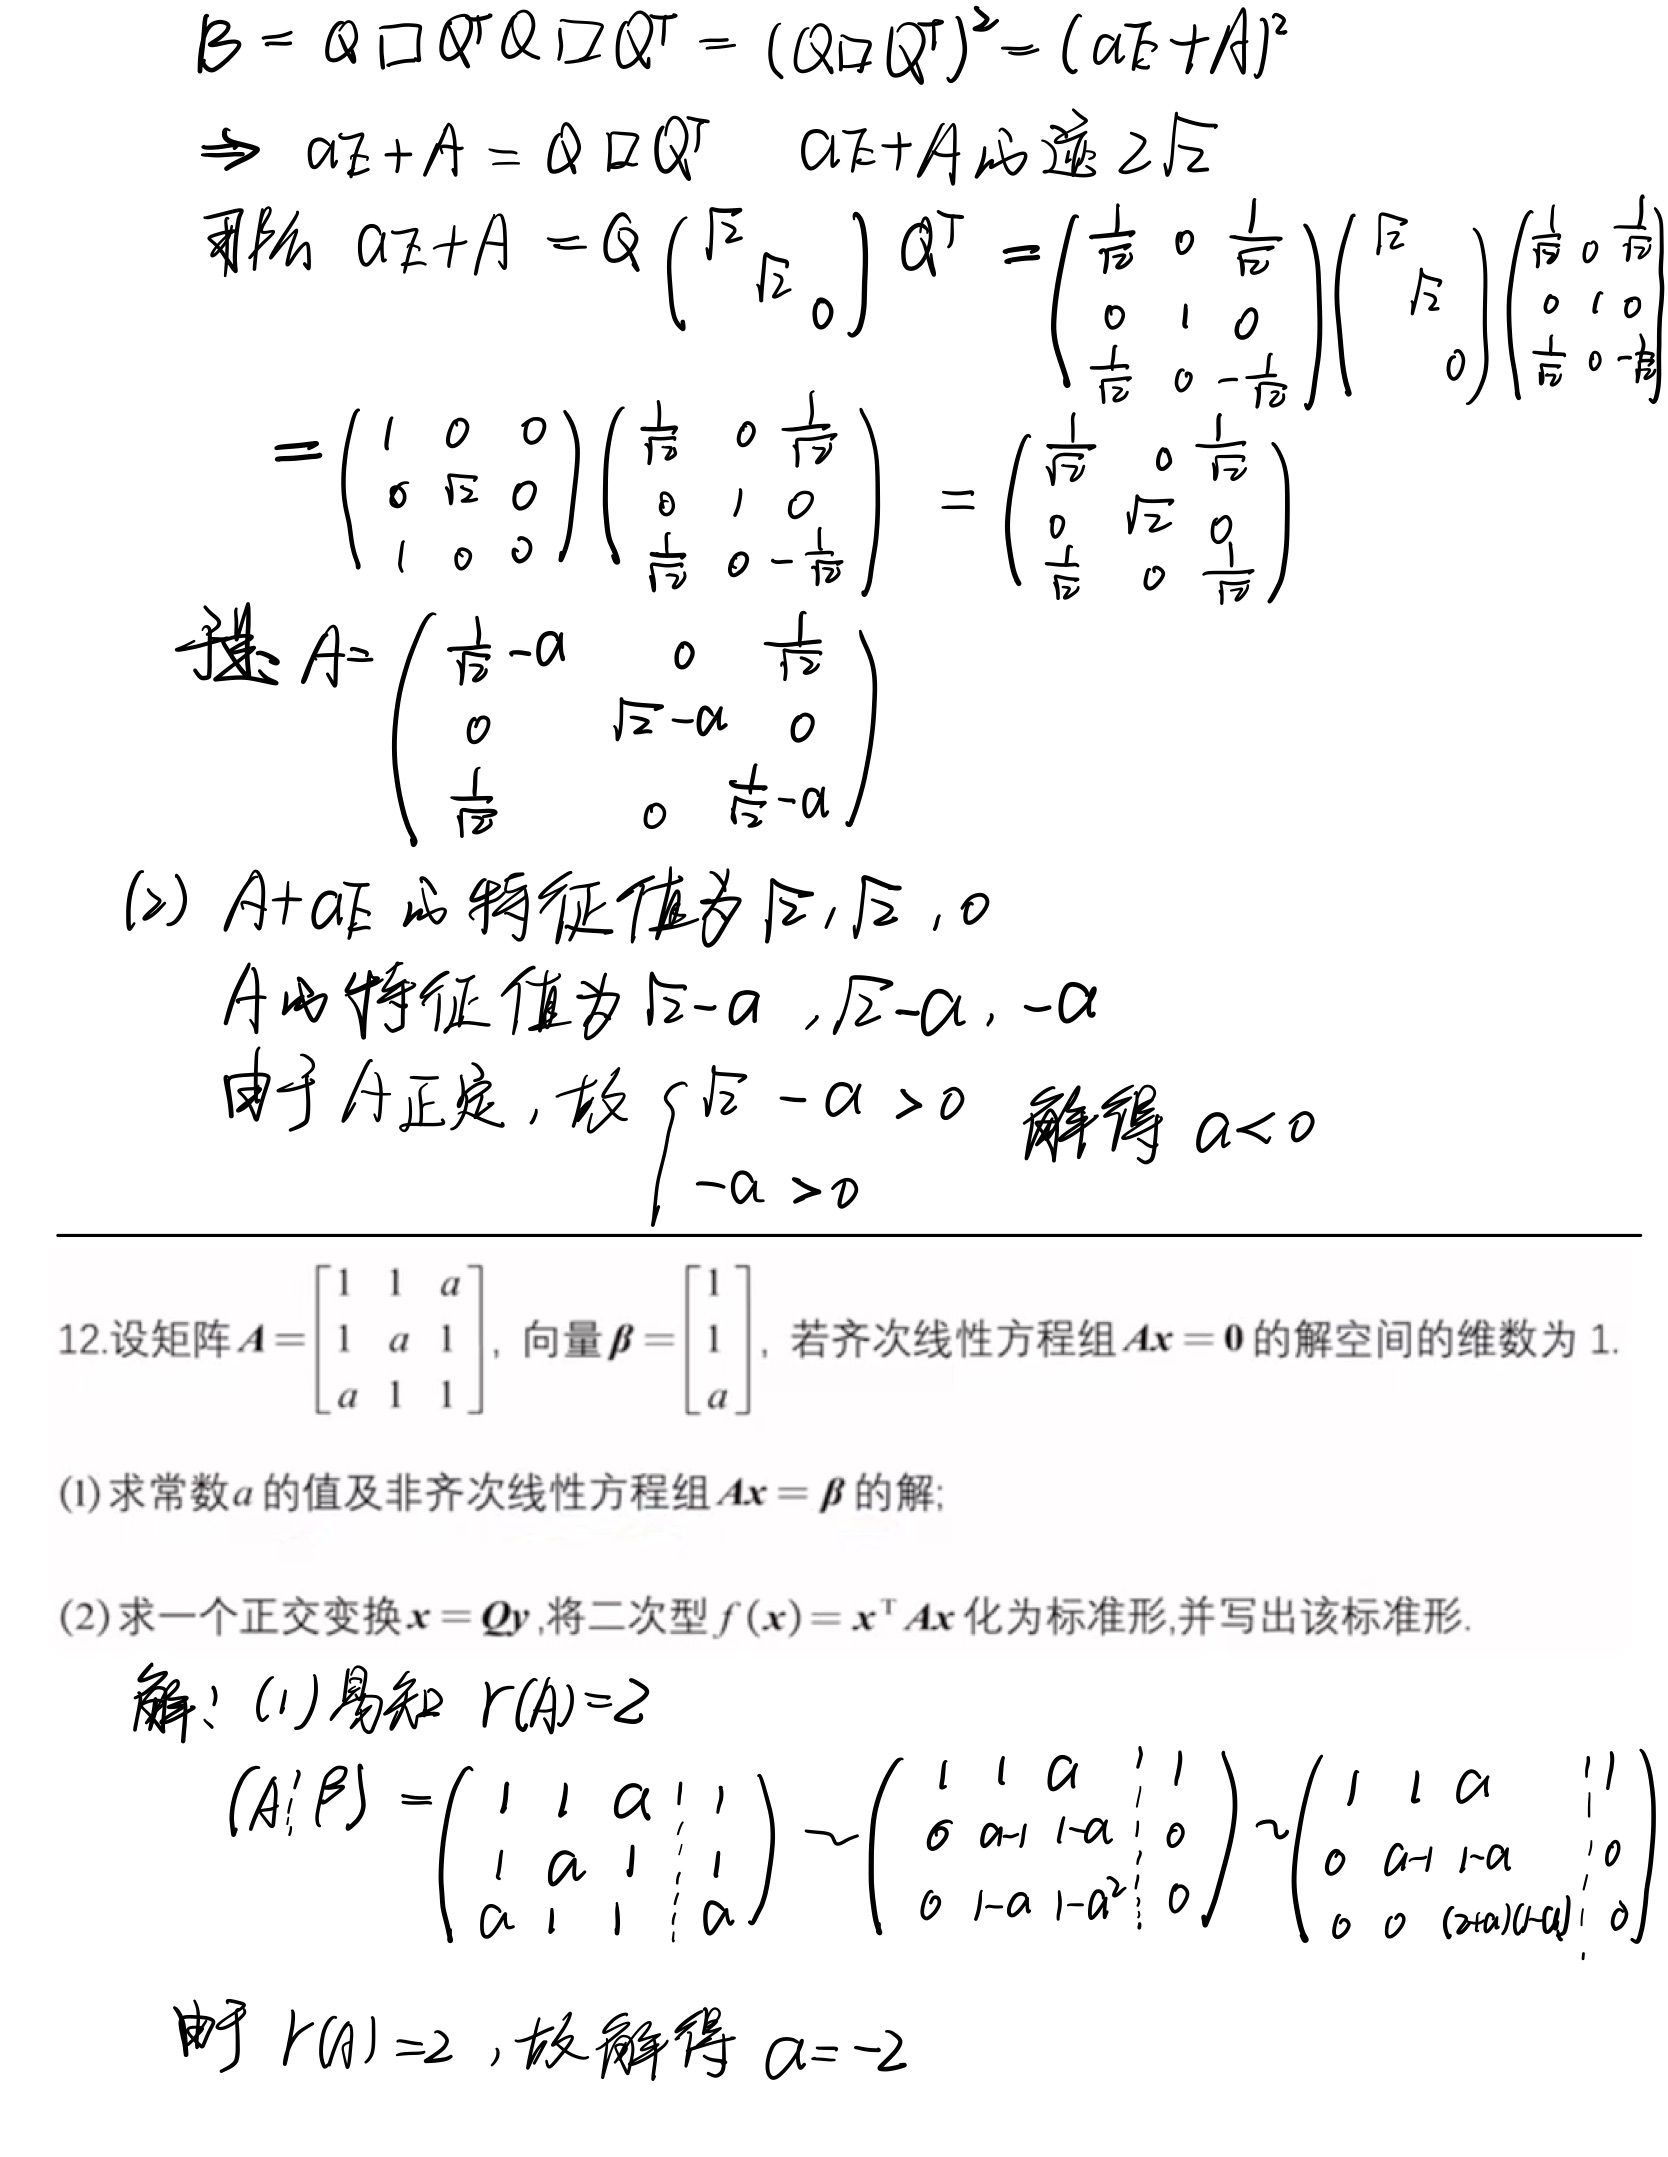 B = Q□QᵀQ□Qᵀ = (Q□Qᵀ)² = (aE+A)²
⇒ aE+A = Q□Qᵀ aE+A的迹 2√2
aE+A = Q (√2 √2 0) Qᵀ = (1/√2 0 1/√2 ; 0 1 0 ; 1/√2 0 -1/√2) (√2 √2 0) (1/√2 0 1/√2 ; 0 1 0 ; 1/√2 0 -1/√2)
= (1 0 0 ; 0 √2 0 ; 1 0 0) (1/√2 0 1/√2 ; 0 1 0 ; 1/√2 0 -1/√2) = (1/√2 0 1/√2 ; 0 √2 0 ; 1/√2 0 1/√2)
于是 A= (1/√2-a 0 1/√2 ; 0 √2-a 0 ; 1/√2 0 1/√2-a)
(2) A+aE 的特征值为 √2, √2, 0
A的特征值为 √2-a, √2-a, -a
由于A正定, 故 { √2-a>0 解得 a<0
-a>0
12.设矩阵A=[1 1 a ; 1 a 1 ; a 1 1], 向量β=[1 ; 1 ; a], 若齐次线性方程组Ax=0的解空间的维数为 1.
(1)求常数a的值及非齐次线性方程组Ax=β的解;
(2)求一个正交变换x=Qy,将二次型f(x)=xᵀAx化为标准形,并写出该标准形.
解: (1)易知 r(A)=2
(A¦β) = (1 1 a ¦ 1 ; 1 a 1 ¦ 1 ; a 1 1 ¦ a) ~ (1 1 a ¦ 1 ; 0 a-1 1-a ¦ 0 ; 0 1-a 1-a² ¦ 0) ~ (1 1 a ¦ 1 ; 0 a-1 1-a ¦ 0 ; 0 0 (2+a)(1-a) ¦ 0)
由于 r(A)=2, 故解得 a=-2